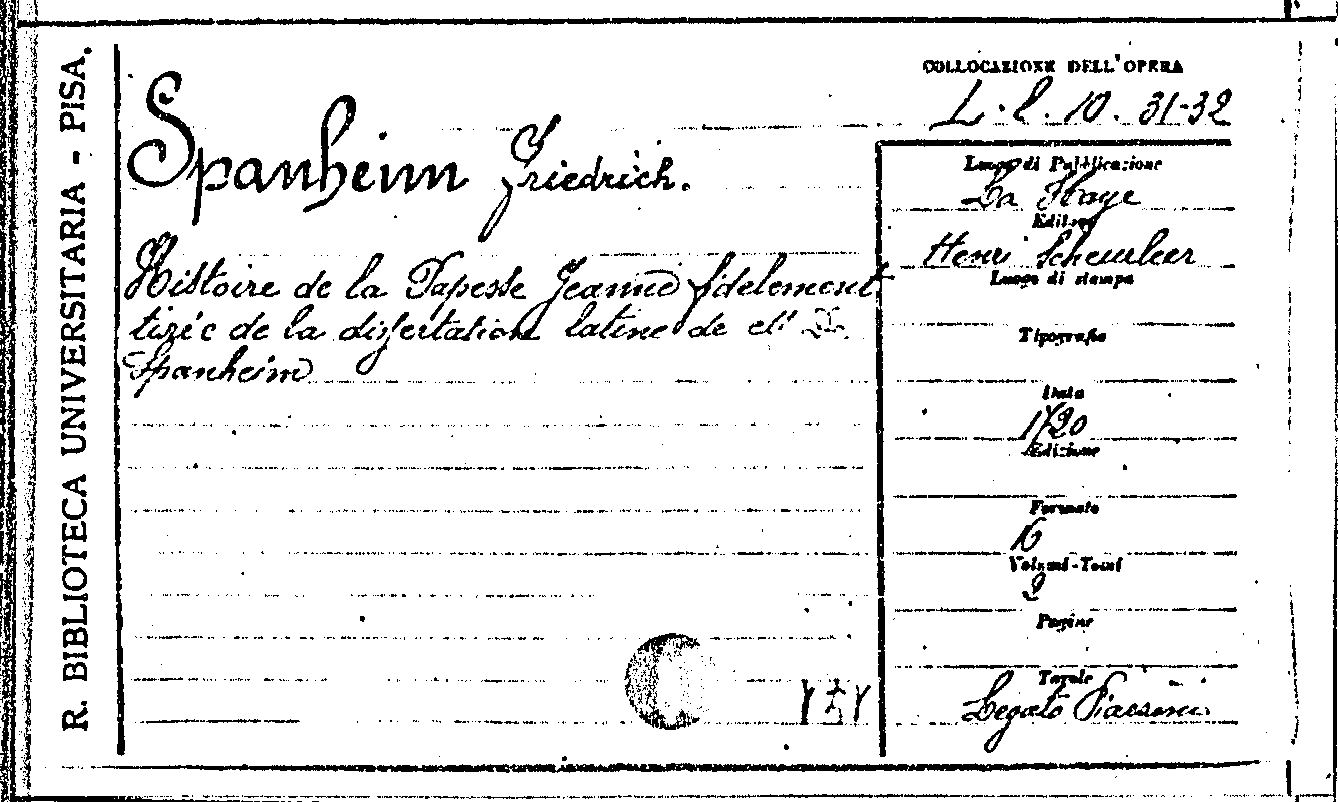 R. BIBLIOTECA UNIVERSITARIA - PISA.
COLLOCAZIONE DELL'OPERA
L. l. 10. 31-32
Spanheim Friedrich.
Histoire de la Papesse Jeanne fidelement
tirée de la dissertation latine de
Spanheim
Luogo di Pubblicazione
La Haye
Editore
Henri Scheurleer
Luogo di stampa
Tipografia
Data
1720
Edizione
Formato
16
Volumi-Tomi
2
Pagine
Tavole
Legato Piaesini